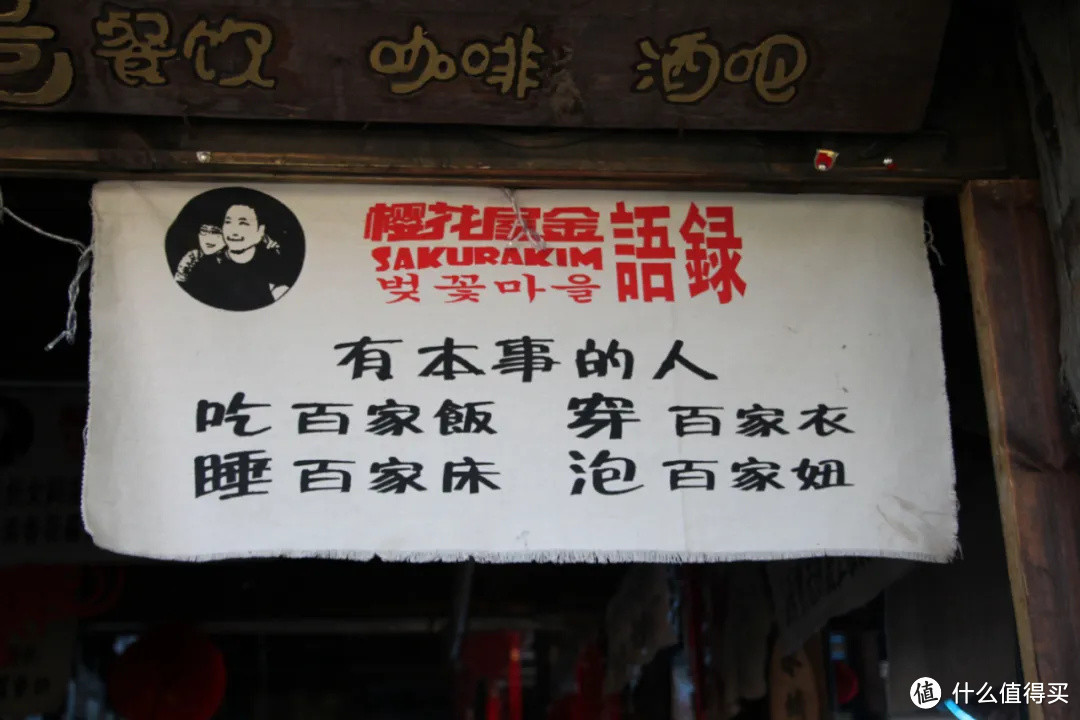 餐饮 咖啡 酒吧
樱花屋金 語録
SAKURAKIM
벚꽃마을
有本事的人
吃百家飯 穿百家衣
睡百家床 泡百家妞
值 什么值得买